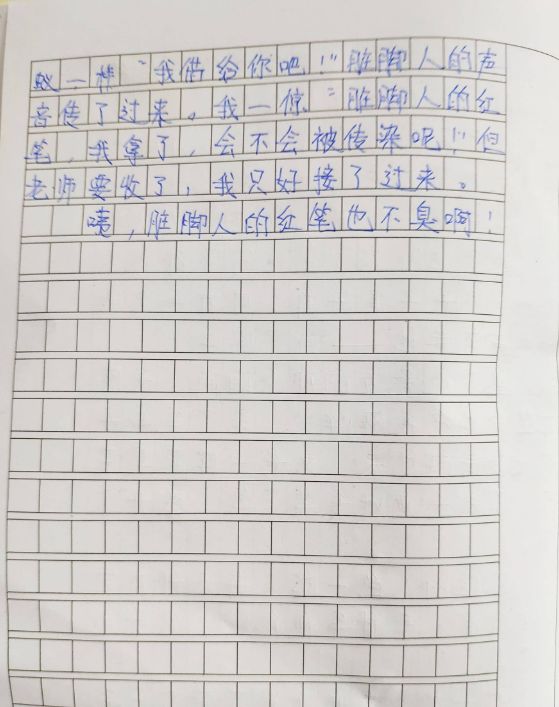 蚁一样“我借给你吧！”脏脚人的声
音传了过来，我一惊“脏脚人的红
笔，我拿了，会不会被传染呢！”但
老师要收了，我只好接了过来。
咦，脏脚人的红笔也不臭啊！